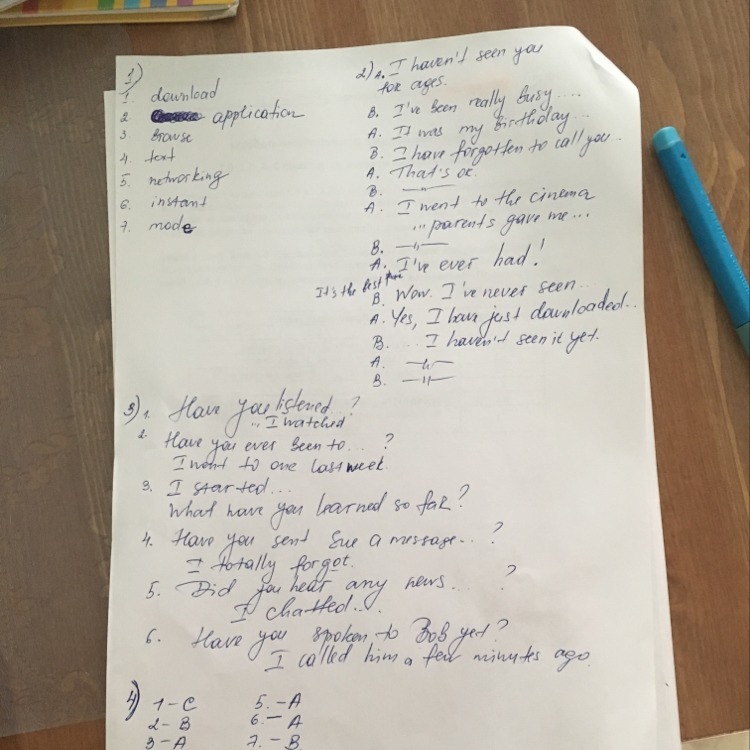 1)
1. download
2 application
3 browse
4. text
5. networking
6. instant
7. mode
2) A. I haven't seen you
for ages.
B. I've been really busy....
A. It was my birthday...
B. I have forgotten to call you...
A. That's ok.
B. —"—
A. I went to the cinema
...parents gave me...
B. —"—
A. I've ever had!
It's the best
B. Wow. I've never seen...
A. Yes, I have just downloaded..
B. ... I haven't seen it yet.
A. —"—
B. —"—
3) 1. Have you listened...?
... I watched
2. Have you ever been to... ?
I went to one last week.
3. I started...
What have you learned so far?
4. Have you sent Sue a message... ?
I totally forgot.
5. Did you hear any news.... ?
I chatted....
6. Have you spoken to Bob yet?
I called him a few minutes ago.
4) 1-C
2-B
3-A
5.-A
6.-A
7.-B